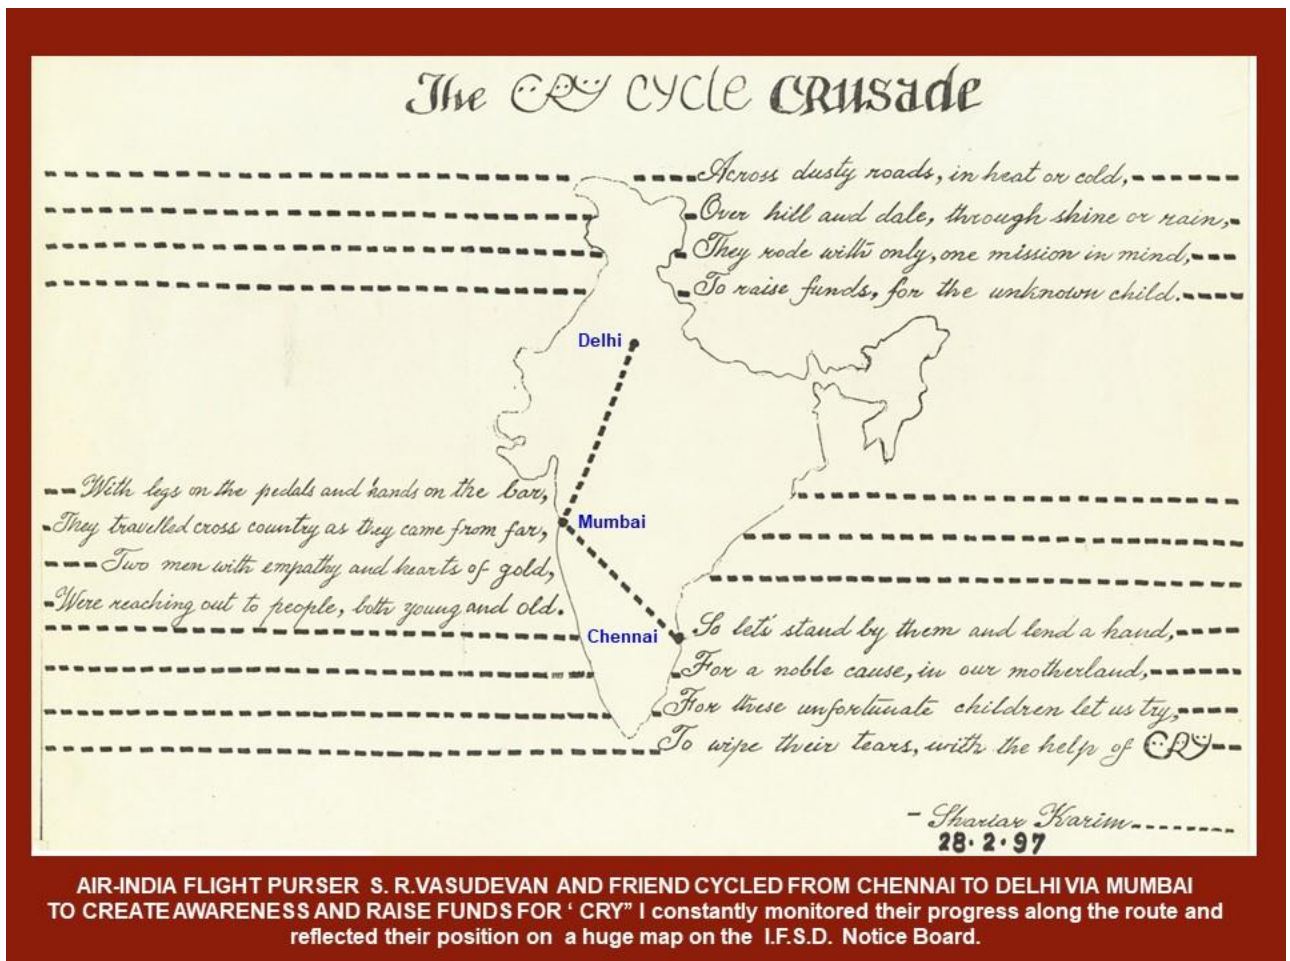 The CRY cycle CRUSADE
Across dusty roads, in heat or cold,
Over hill and dale, through shine or rain,
They rode with only, one mission in mind,
To raise funds, for the unknown child.
Delhi
With legs on the pedals and hands on the bar,
They travelled cross country as they came from far,
Two men with empathy and hearts of gold,
Were reaching out to people, both young and old.
Mumbai
Chennai
So let's stand by them and lend a hand,
For a noble cause, in our motherland,
For these unfortunate children let us try,
To wipe their tears, with the help of CRY
- Shariar Karim
28.2.97
AIR-INDIA FLIGHT PURSER S. R.VASUDEVAN AND FRIEND CYCLED FROM CHENNAI TO DELHI VIA MUMBAI
TO CREATE AWARENESS AND RAISE FUNDS FOR ‘ CRY” I constantly monitored their progress along the route and
reflected their position on a huge map on the I.F.S.D. Notice Board.